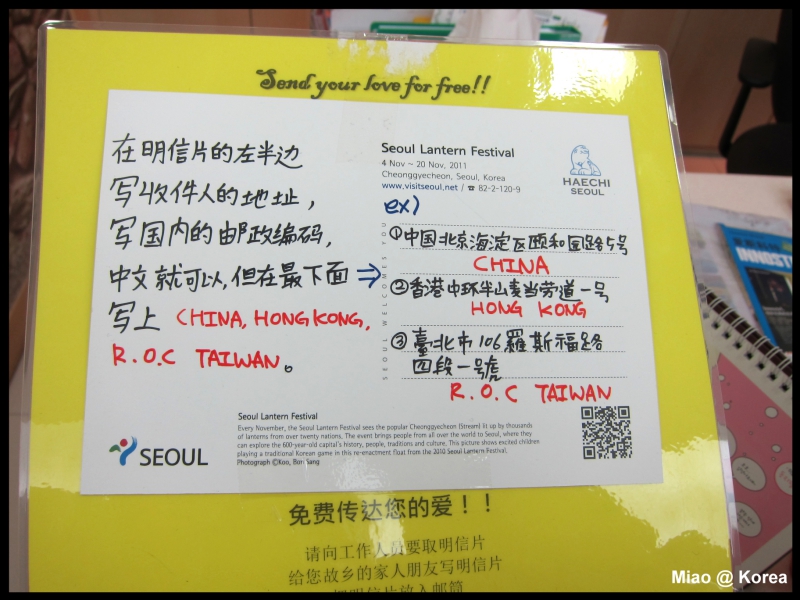 Send your love for free!!
在明信片的左半边
写收件人的地址，
写国内的邮政编码，
中文就可以，但在最下面 ⇒
写上 CHINA, HONG KONG,
R.O.C TAIWAN。
Seoul Lantern Festival
4 Nov ~ 20 Nov, 2011
Cheonggyecheon, Seoul, Korea
www.visitseoul.net / ☎ 82-2-120-9
HAECHI
SEOUL
ex)
SEOUL WELCOMES YOU
①中国北京海淀区颐和园路5号
CHINA
②香港中环半山麦当劳道一号
HONG KONG
③臺北市106羅斯福路
四段一號
R.O.C TAIWAN
SEOUL
Seoul Lantern Festival
Every November, the Seoul Lantern Festival sees the popular Cheonggyecheon (Stream) lit up by thousands
of lanterns from over twenty nations. The event brings people from all over the world to Seoul, where they
can explore the 600-year-old capital's history, people, traditions and culture. This picture shows excited children
playing a traditional Korean game in this re-enactment float from the 2010 Seoul Lantern Festival.
Photograph ©Koo, Bon Sang
免费传达您的爱！！
请向工作人员要取明信片
给您故乡的家人朋友写明信片
把明信片放入邮筒
Miao @ Korea